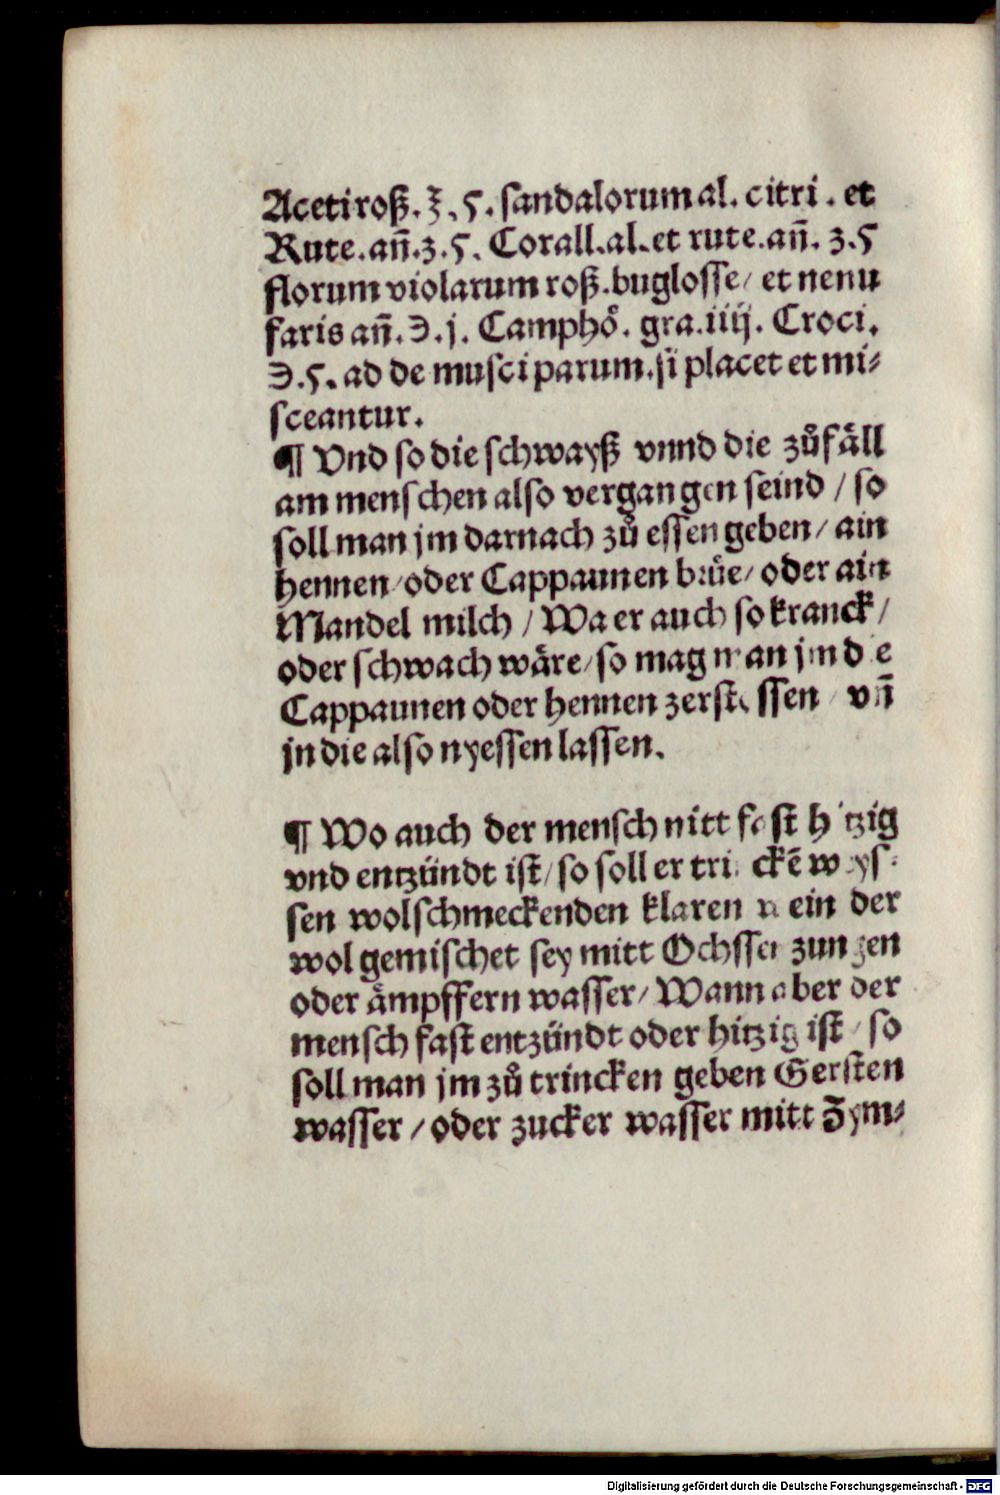 Aceti roß. ℥. 5. sandalorum al. citri. et
Rute. añ. ʒ. 5. Corall. al. et rute. añ. ʒ. 5
florum violarum roß. buglosse / et nenu
faris añ. ℈. j. Camphoͤ. gra. iiij. Croci.
℈. 5. ad de musci parum. si placet et mi⸗
sceantur.
¶ Vnd so die schwayß vnnd die zuͦfaͤll
am menschen also vergangen seind / so
soll man jm darnach zuͦ essen geben / ain
hennen / oder Cappaunen bruͤe / oder ain
Mandel milch / Wa er auch so kranck /
oder schwach waͤre / so mag man jm die
Cappaunen oder hennen zerstossen / vñ
jn die also nyessen lassen.
¶ Wo auch der mensch nitt fast hitzig
vnd entzündt ist / so soll er trinckē weys⸗
sen wolschmeckenden klaren wein der
wol gemischet sey mitt Ochssen zungen
oder aͤmpffern wasser / Wann aber der
mensch fast entzündt oder hitzig ist / so
soll man jm zuͦ trincken geben Gersten
wasser / oder zucker wasser mitt Zym⸗
Digitalisierung gefördert durch die Deutsche Forschungsgemeinschaft - DFG